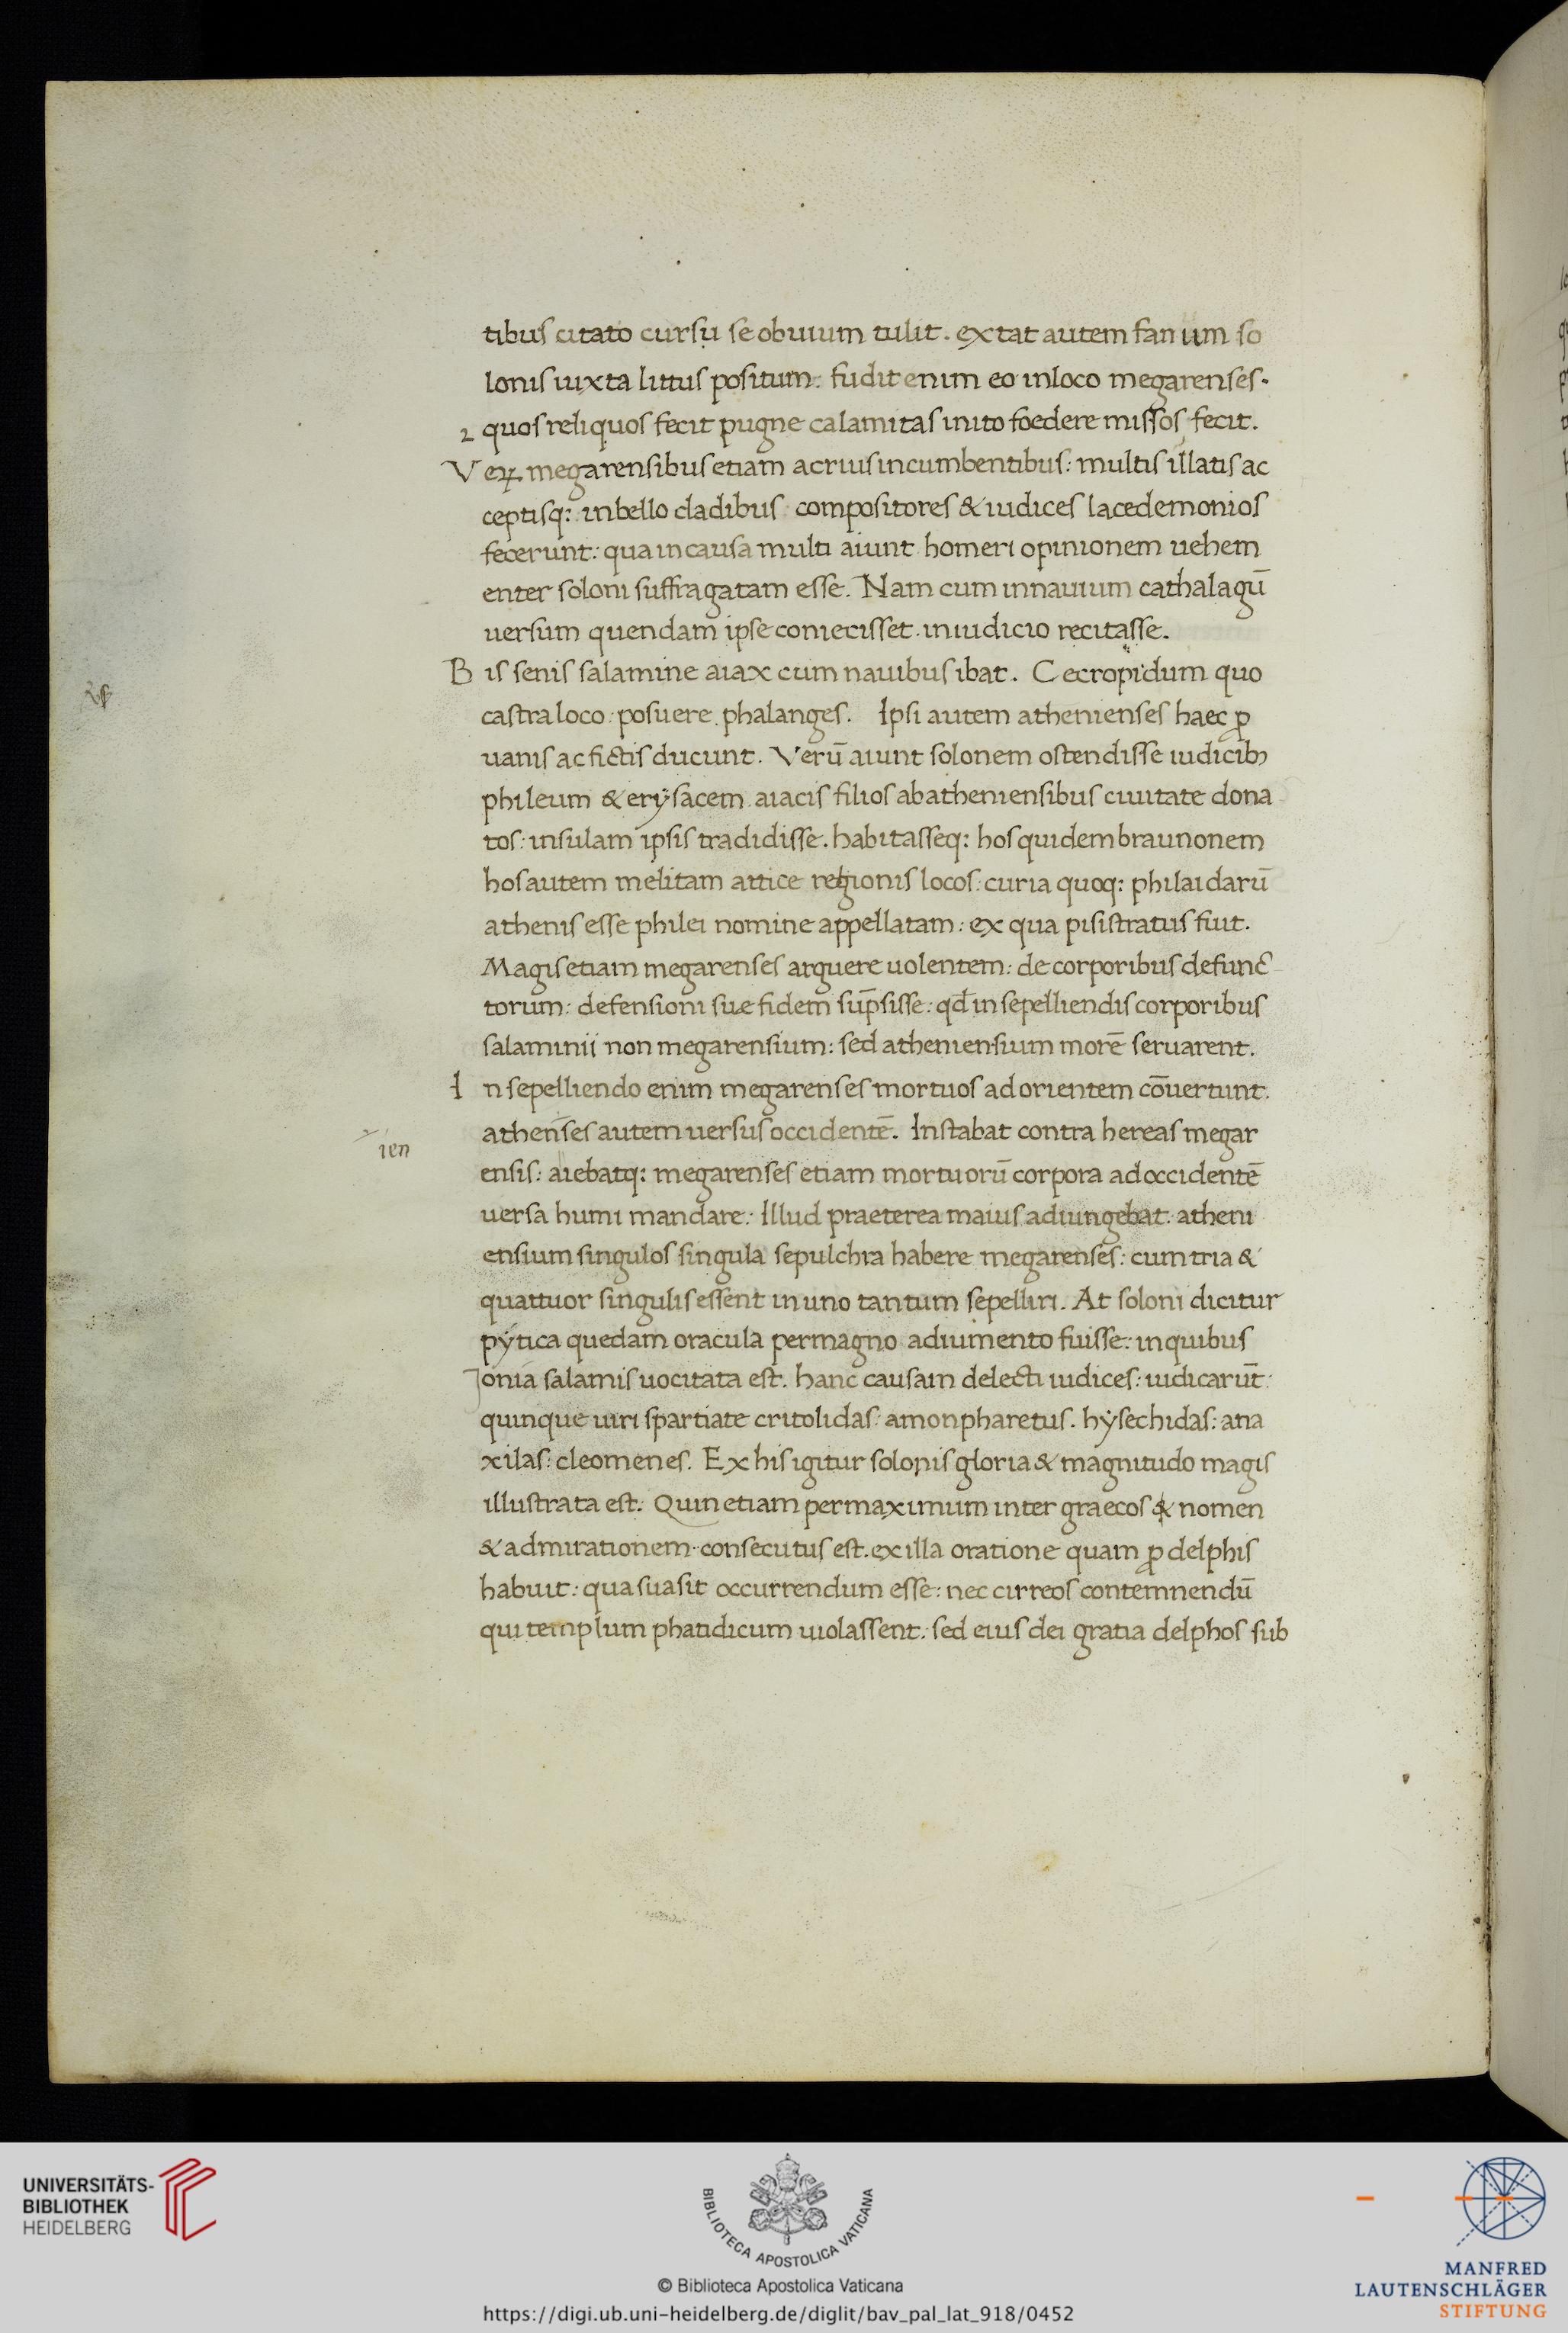 tibus citato cursu se obuium tulit. extat autem fanum so
lonis iuxta littus positum: fudit enim eo inloco megarenses.
quos reliquos fecit pugne calamitas inito foedere missos fecit.
Veꝝ megarensibus etiam acrius incumbentibus: multis illatis ac
ceptisq: inbello cladibus compositores & iudices lacedemonios
fecerunt: qua in causa multi aiunt homeri opinionem uehem
enter soloni suffragatam esse. Nam cum innauium cathalagū
uersum quendam ipse coniecisset. iniudicio recitasse.
Bis senis salamine aiax cum nauibus ibat. Cecropidum quo
castra loco: posuere phalanges. Ipsi autem athenienses haec ꝓ
uanis ac fictis ducunt. Verū aiunt solonem ostendisse iudicibꝫ
phileum & erÿsacem aiacis filios ab atheniensibus ciuitate dona
tos: insulam ipsis tradidisse. habitasseq: hos quidem braunonem
hos autem melitam attice regionis locos: curia quoq: philaidarū
athenis esse philei nomine appellatam: ex qua pisistratus fuit.
Magis etiam megarenses arguere uolentem: de corporibus defunc
torum: defensioni suæ fidem sūpsisse: qđ in sepelliendis corporibus
salaminii non megarensium: sed atheniensium morē seruarent.
In sepelliendo enim megarenses mortuos ad orientem cōuertunt.
athenses autem uersus occidentē. Instabat contra hereas megar
ien
ensis: aiebatq: megarenses etiam mortuorū corpora ad occidentē
uersa humi mandare: Illud praeterea maius adiungebat: atheni
ensium singulos singula sepulchra habere megarenses: cum tria &
quattuor singulis essent in uno tantum sepelliri. At soloni dicitur
pÿtica quedam oracula permagno adiumento fuisse: in quibus
Ionia salamis uocitata est. hanc causam delecti iudices: iudicarūt:
quinque uiri spartiate critolidas: amonpharetus. hÿsechidas: ana
xilas: cleomenes. Ex his igitur solonis gloria & magnitudo magis
illustrata est. Quin etiam permaximum inter graecos & nomen
& admirationem consecutus est. ex illa oratione quam ꝓ delphis
habuit: qua suasit occurrendum esse: nec cirreos contemnendū
qui templum phatidicum uiolassent: sed eius dei gratia delphos sub
UNIVERSITÄTS-
BIBLIOTHEK
HEIDELBERG
BIBLIOTECA APOSTOLICA VATICANA
© Biblioteca Apostolica Vaticana
https://digi.ub.uni-heidelberg.de/diglit/bav_pal_lat_918/0452
MANFRED
LAUTENSCHLÄGER
STIFTUNG